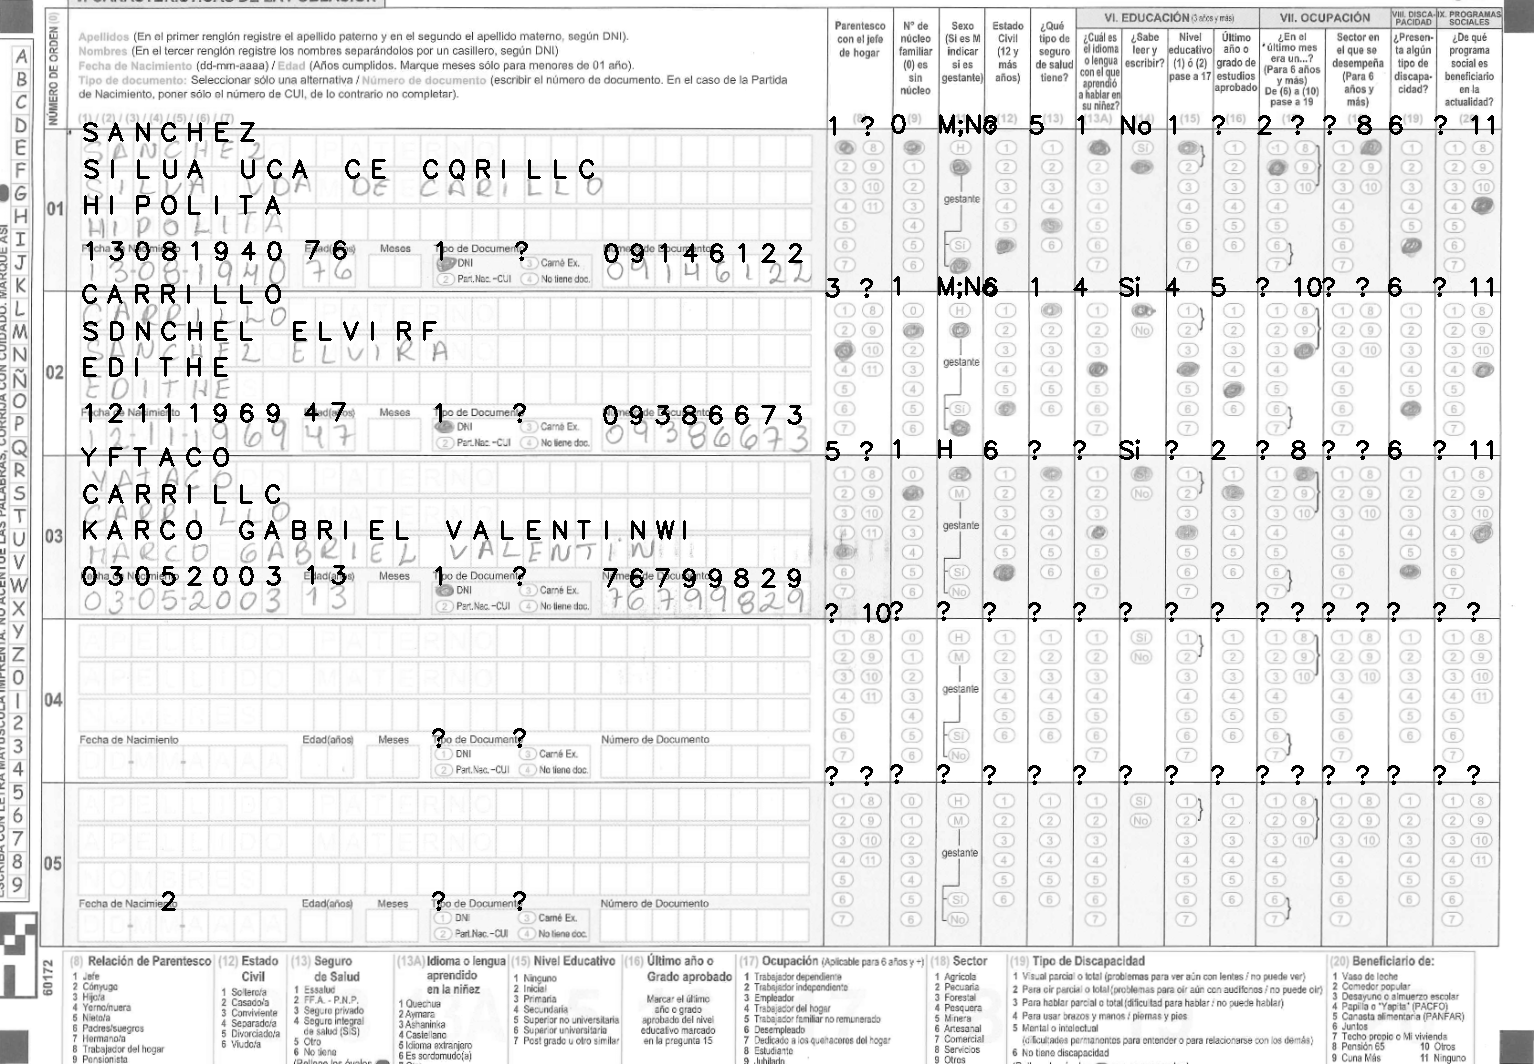 Apellidos (En el primer renglón registre el apellido paterno y en el segundo el apellido materno, según DNI).
Nombres (En el tercer renglón registre los nombres separándolos por un casillero, según DNI)
Fecha de Nacimiento (dd-mm-aaaa) / Edad (Años cumplidos. Marque meses sólo para menores de 01 año).
Tipo de documento: Seleccionar sólo una alternativa / Número de documento (escribir el número de documento. En el caso de la Partida
de Nacimiento, poner sólo el número de CUI, de lo contrario no completar).
NÚMERO DE ORDEN (0)
Parentesco con el jefe de hogar
N° de núcleo familiar (0) es sin núcleo
Sexo (Si es M indicar si es gestante)
Estado Civil (12 y más años)
¿Qué tipo de seguro de salud tiene?
VI. EDUCACIÓN (3 años y más)
¿Cuál es el idioma o lengua con el que aprendió a hablar en su niñez?
¿Sabe leer y escribir?
Nivel educativo (1) ó (2) pase a 17
Último año o grado de estudios aprobado
VII. OCUPACIÓN
¿En el último mes era un...? (Para 6 años y más) De (6) a (10) pase a 19
Sector en el que se desempeña (Para 6 años y más)
VIII. DISCAPACIDAD
¿Presenta algún tipo de discapacidad?
IX. PROGRAMAS SOCIALES
¿De qué programa social es beneficiario en la actualidad?
SANCHEZ 1 ? 0 M;No 6 5 1 No 1 ? 2 ? ? 8 6 ? 11
SANCHEZ
SILUA UCA CE CQRILLC
SILVA VDA DE CARILLO
01
HIPOLITA
HIPOLITA
13081940 76 1 ? 09146122
Fecha de Nacimiento Edad(años) Meses Tipo de Documento Número de Documento
13-08-1940 76 1 DNI 3 Carné Ex. 09146122
2 Part.Nac.-CUI 4 No tiene doc.
CARRILLO 3 ? 1 M;No 6 1 4 Si 4 5 ? 10 ? ? 6 ? 11
CARRILLO
SDNCHEL ELVIRF
SANCHEZ ELVIRA
02
EDITHE
EDITHE
12111969 47 1 ? 09386673
Fecha de Nacimiento Edad(años) Meses Tipo de Documento Número de Documento
12-11-1969 47 1 DNI 3 Carné Ex. 09386673
2 Part.Nac.-CUI 4 No tiene doc.
YFTACO 5 ? 1 H 6 ? ? Si ? 2 ? 8 ? ? 6 ? 11
CARRILLC
CARRILLO
03
KARCO GABRIEL VALENTINWI
MARCO GABRIEL VALENTIN
03052003 13 1 ? 76799829
Fecha de Nacimiento Edad(años) Meses Tipo de Documento Número de Documento
03-05-2003 13 1 DNI 3 Carné Ex. 76799829
2 Part.Nac.-CUI 4 No tiene doc.
? 10 ? ? ? ? ? ? ? ? ? ? ? ? ? ? ?
04
? ?
Fecha de Nacimiento Edad(años) Meses Tipo de Documento Número de Documento
1 DNI 3 Carné Ex.
2 Part.Nac.-CUI 4 No tiene doc.
? ? ? ? ? ? ? ? ? ? ? ? ? ? ? ? ?
05
2 ? ?
Fecha de Nacimiento Edad(años) Meses Tipo de Documento Número de Documento
1 DNI 3 Carné Ex.
2 Part.Nac.-CUI 4 No tiene doc.
60172
(8) Relación de Parentesco
1 Jefe
2 Cónyuge
3 Hijo/a
4 Yerno/nuera
5 Nieto/a
6 Padres/suegros
7 Hermano/a
8 Trabajador del hogar
9 Pensionista
(12) Estado Civil
1 Soltero/a
2 Casado/a
3 Conviviente
4 Separado/a
5 Divorciado/a
6 Viudo/a
(13) Seguro de Salud
1 Essalud
2 FF.A. - P.N.P.
3 Seguro privado
4 Seguro integral de salud (SIS)
5 Otro
6 No tiene
(13A) Idioma o lengua aprendido en la niñez
1 Quechua
2 Aymara
3 Ashaninka
4 Castellano
5 Idioma extranjero
6 Es sordomudo(a)
(15) Nivel Educativo
1 Ninguno
2 Inicial
3 Primaria
4 Secundaria
5 Superior no universitaria
6 Superior universitaria
7 Post grado u otro similar
(16) Último año o Grado aprobado
Marcar el último año o grado aprobado del nivel educativo marcado en la pregunta 15
(17) Ocupación (Aplicable para 6 años y +)
1 Trabajador dependiente
2 Trabajador independiente
3 Empleador
4 Trabajador del hogar
5 Trabajador familiar no remunerado
6 Desempleado
7 Dedicado a los quehaceres del hogar
8 Estudiante
9 Jubilado
(18) Sector
1 Agrícola
2 Pecuaria
3 Forestal
4 Pesquera
5 Minera
6 Artesanal
7 Comercial
8 Servicios
9 Otros
(19) Tipo de Discapacidad
1 Visual parcial o total (problemas para ver aún con lentes / no puede ver)
2 Para oir parcial o total (problemas para oir aún con audífonos / no puede oir)
3 Para hablar parcial o total (dificultad para hablar / no puede hablar)
4 Para usar brazos y manos / piernas y pies
5 Mental o intelectual
(dificultades permanentes para entender o para relacionarse con los demás)
6 No tiene discapacidad
(20) Beneficiario de:
1 Vaso de leche
2 Comedor popular
3 Desayuno o almuerzo escolar
4 Papilla o "Yapita" (PACFO)
5 Canasta alimentaria (PANFAR)
6 Juntos
7 Techo propio o Mi vivienda
8 Pensión 65 10 Otros
9 Cuna Más 11 Ninguno